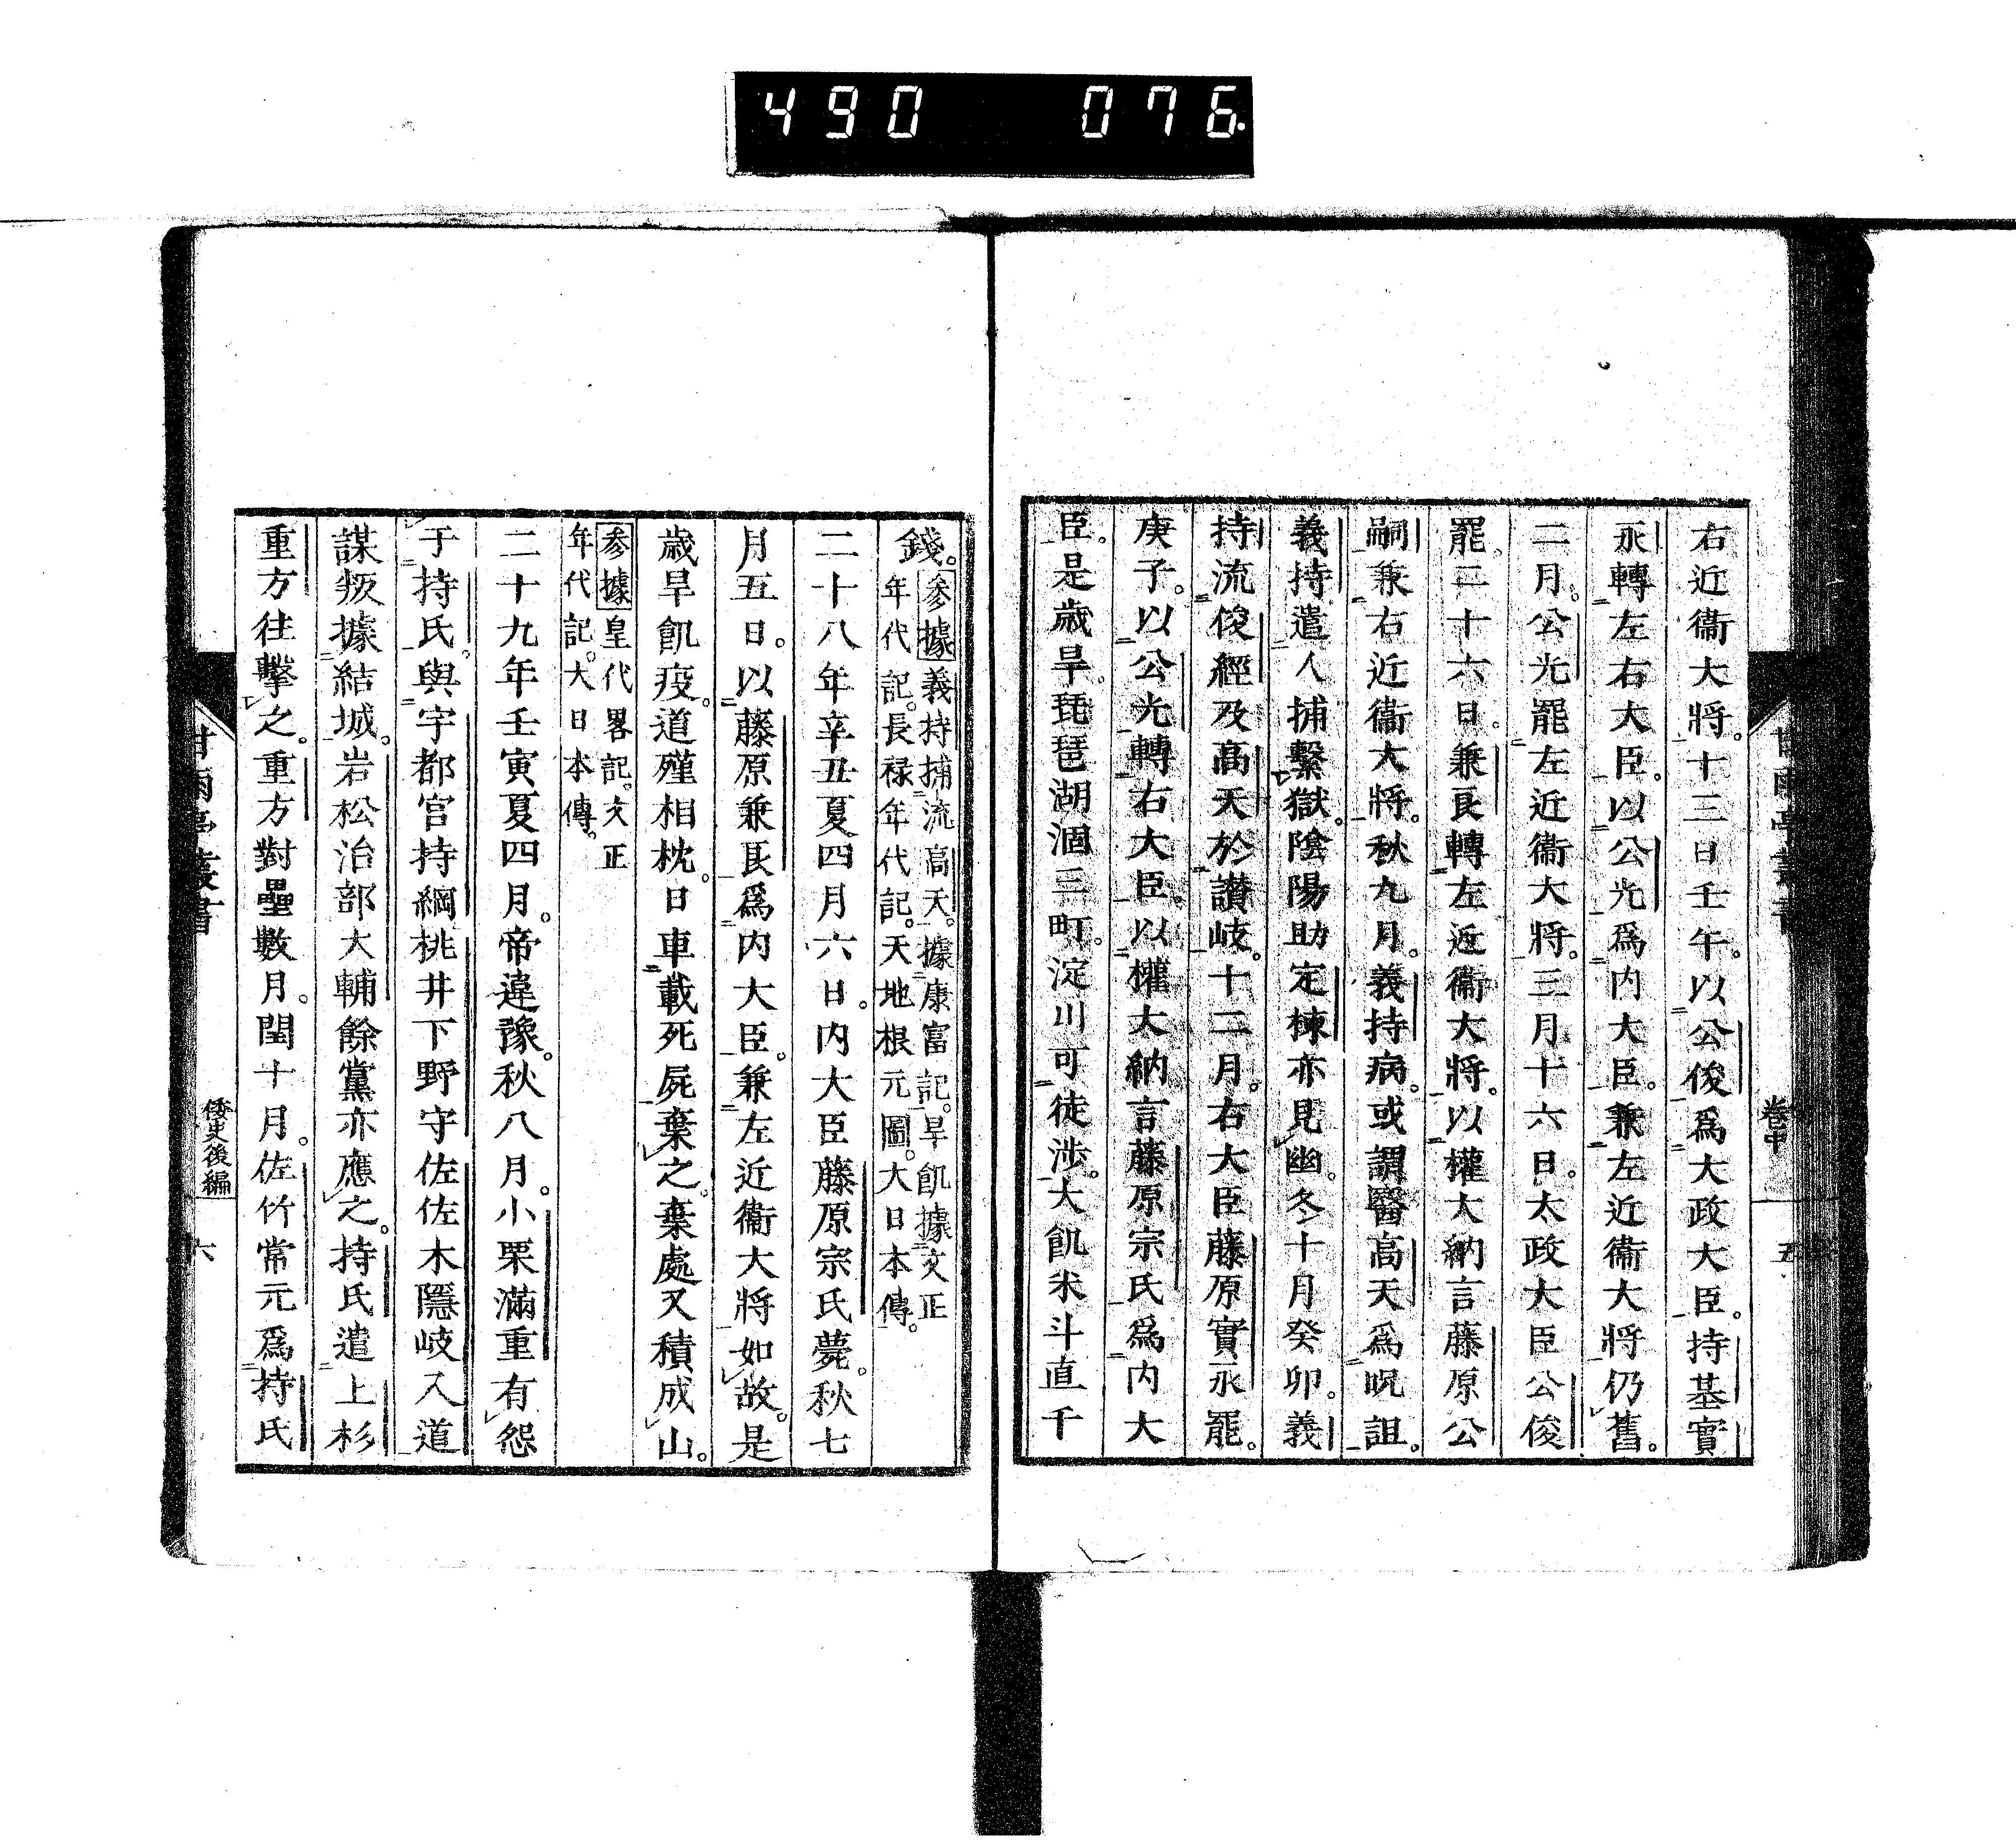 490 076
右近衞大將。十三日壬午。以公俊爲大政大臣。持基實
永轉左右大臣。以公光爲内大臣。兼左近衞大將仍舊。
二月。公光罷左近衞大將。三月十六日。太政大臣公俊
罷。二十六日。兼良轉左近衞大將。以權大納言藤原公
嗣兼右近衞大將。秋九月。義持病。或謂醫高天爲呪詛。
義持遣人捕繫獄。陰陽助定棟亦見幽。冬十月癸卯。義
持流俊經及高天於讃岐。十二月。右大臣藤原實永罷。
庚子。以公光轉右大臣。以權大納言藤原宗氏爲内大
臣。是歳旱。琵琶湖涸三町。淀川可徒渉。大飢米斗直千
卷中
五
錢。參據義持捕流高天。據康富記。旱飢據文正
年代記。長禄年代記。天地根元圖。大日本傳。
二十八年辛丑夏四月六日。内大臣藤原宗氏薨。秋七
月五日。以藤原兼良爲内大臣。兼左近衞大將如故。是
歳旱飢疫。道殣相枕。日車載死屍棄之。棄處又積成山。
參據皇代畧記。文正
年代記。大日本傳。
二十九年壬寅夏四月。帝違豫。秋八月。小栗滿重有怨
于持氏。與宇都宮持綱桃井下野守佐佐木隱岐入道
謀叛據結城。岩松治部大輔餘黨亦應之。持氏遣上杉
重方往擊之。重方對壘數月。閏十月。佐竹常元爲持氏
甘雨亭叢書
倭史後編
六